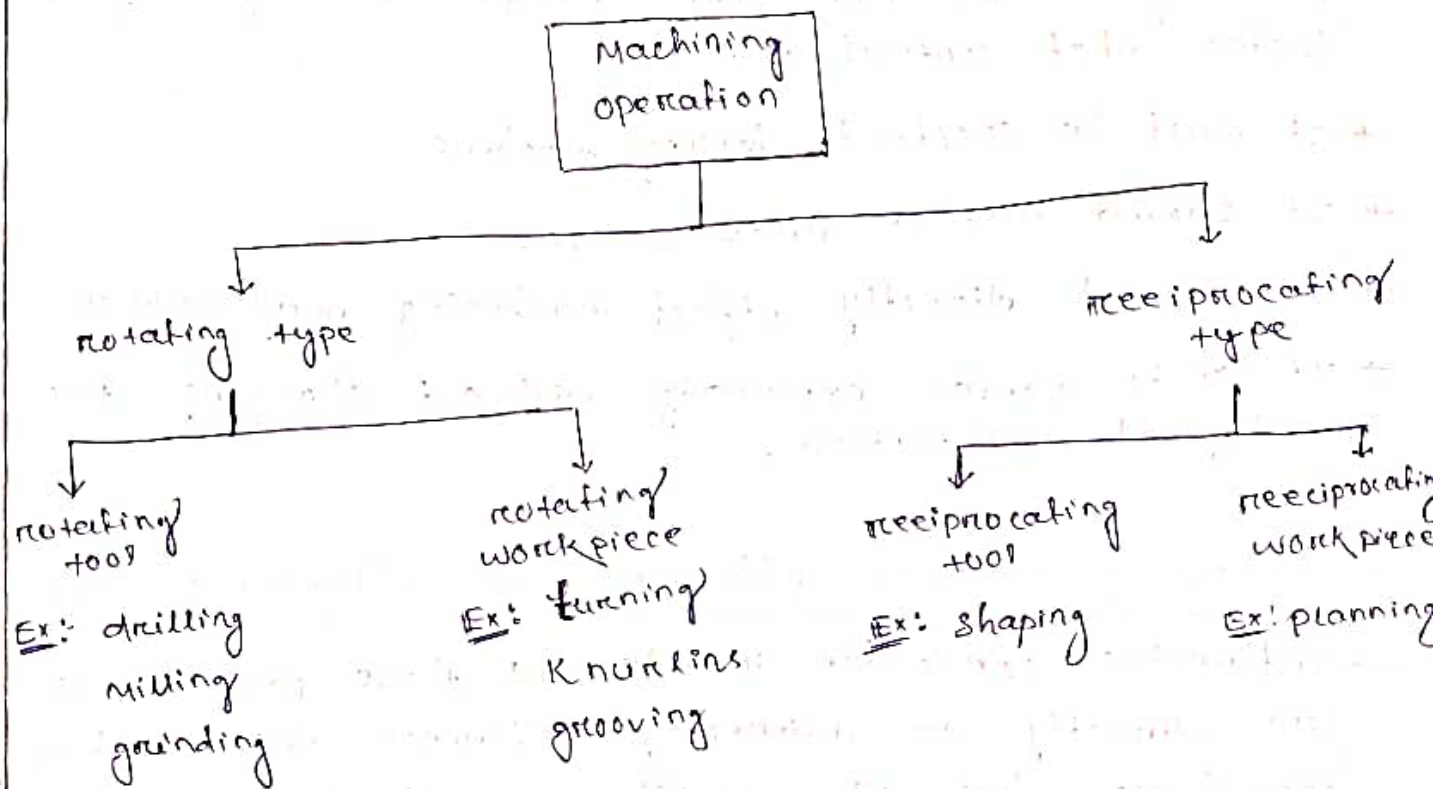 Machining
operation
rotating type
reciprocating
type
rotating
tool
Ex: drilling
Milling
grinding
rotating
workpiece
Ex: turning
Knurling
grooving
reciprocating
tool
Ex: shaping
reciprocating
workpiece
Ex: planning